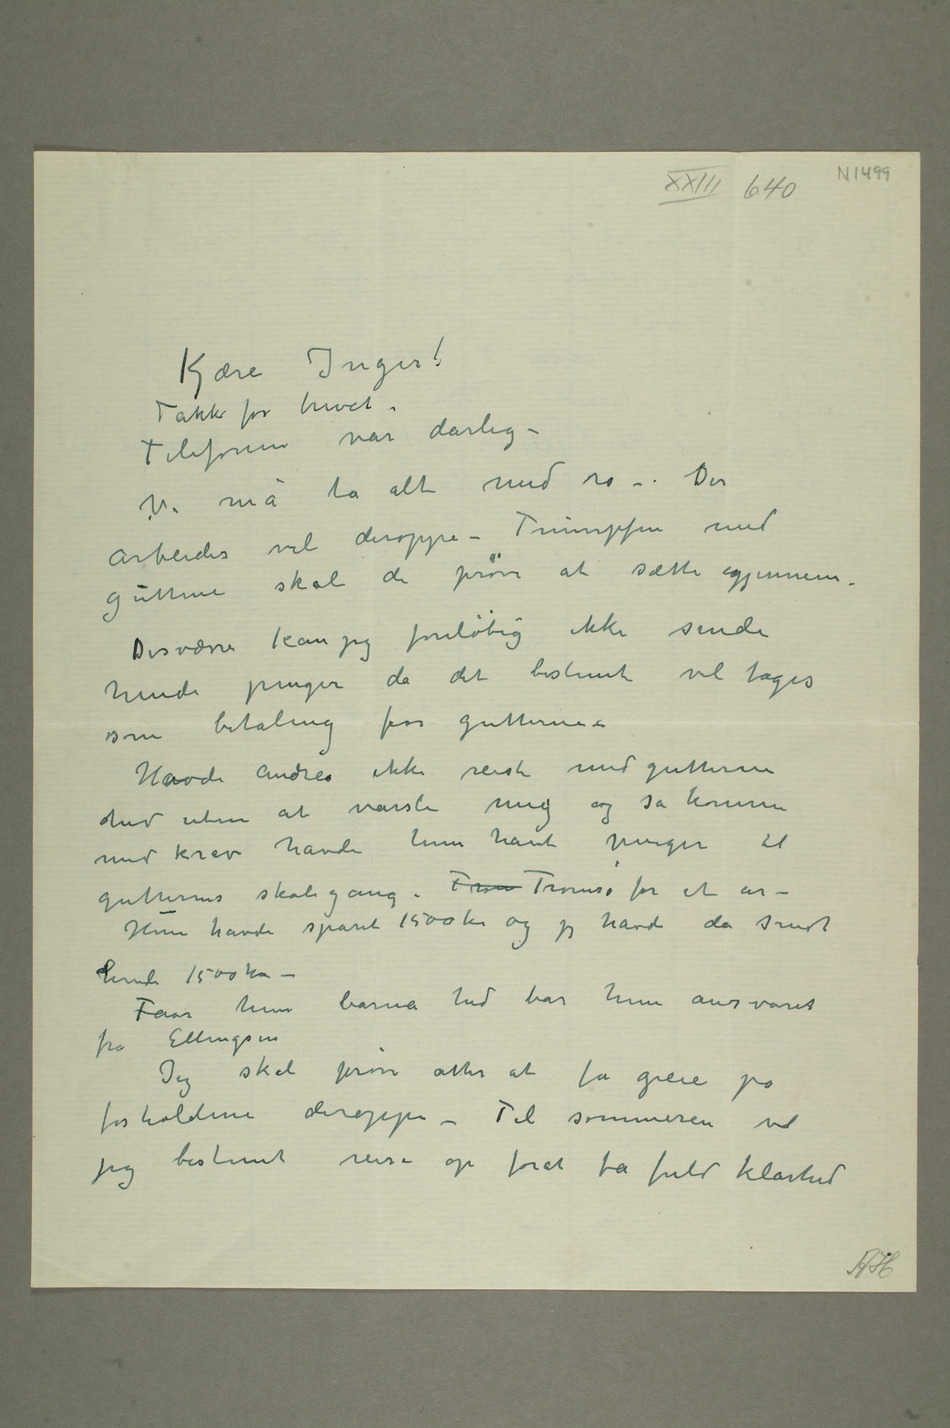 XXIII 640
N1499
Kjære Inger!
Takk for brevet.
Telefonen var dårlig –
Vi må ta alt med ro –. Der
arbeides vel deroppe – Triumpfen med
guttene skal de prøve at sætte igjennem –
Desværre kan jeg foreløbig ikke sende
hende penger da det bestemt vil tages
som betaling for gutterne –
Havde Andrea ikke reist med gutterne
hid uten at varsle mig og så komme
med krav havde hun havt penger til
gutternes skolegang. From Tromsø for et år –
Hun havde sparet 1500 kr og jeg havde da sendt
hende 1500 kr –
Faar hun barna hid bær hun ansvaret
fra Ellingsen
Jeg skal prøve atter at få greie på
forholdene deroppe – Til sommeren vil
jeg bestemt reise op forat få fuld klarhed